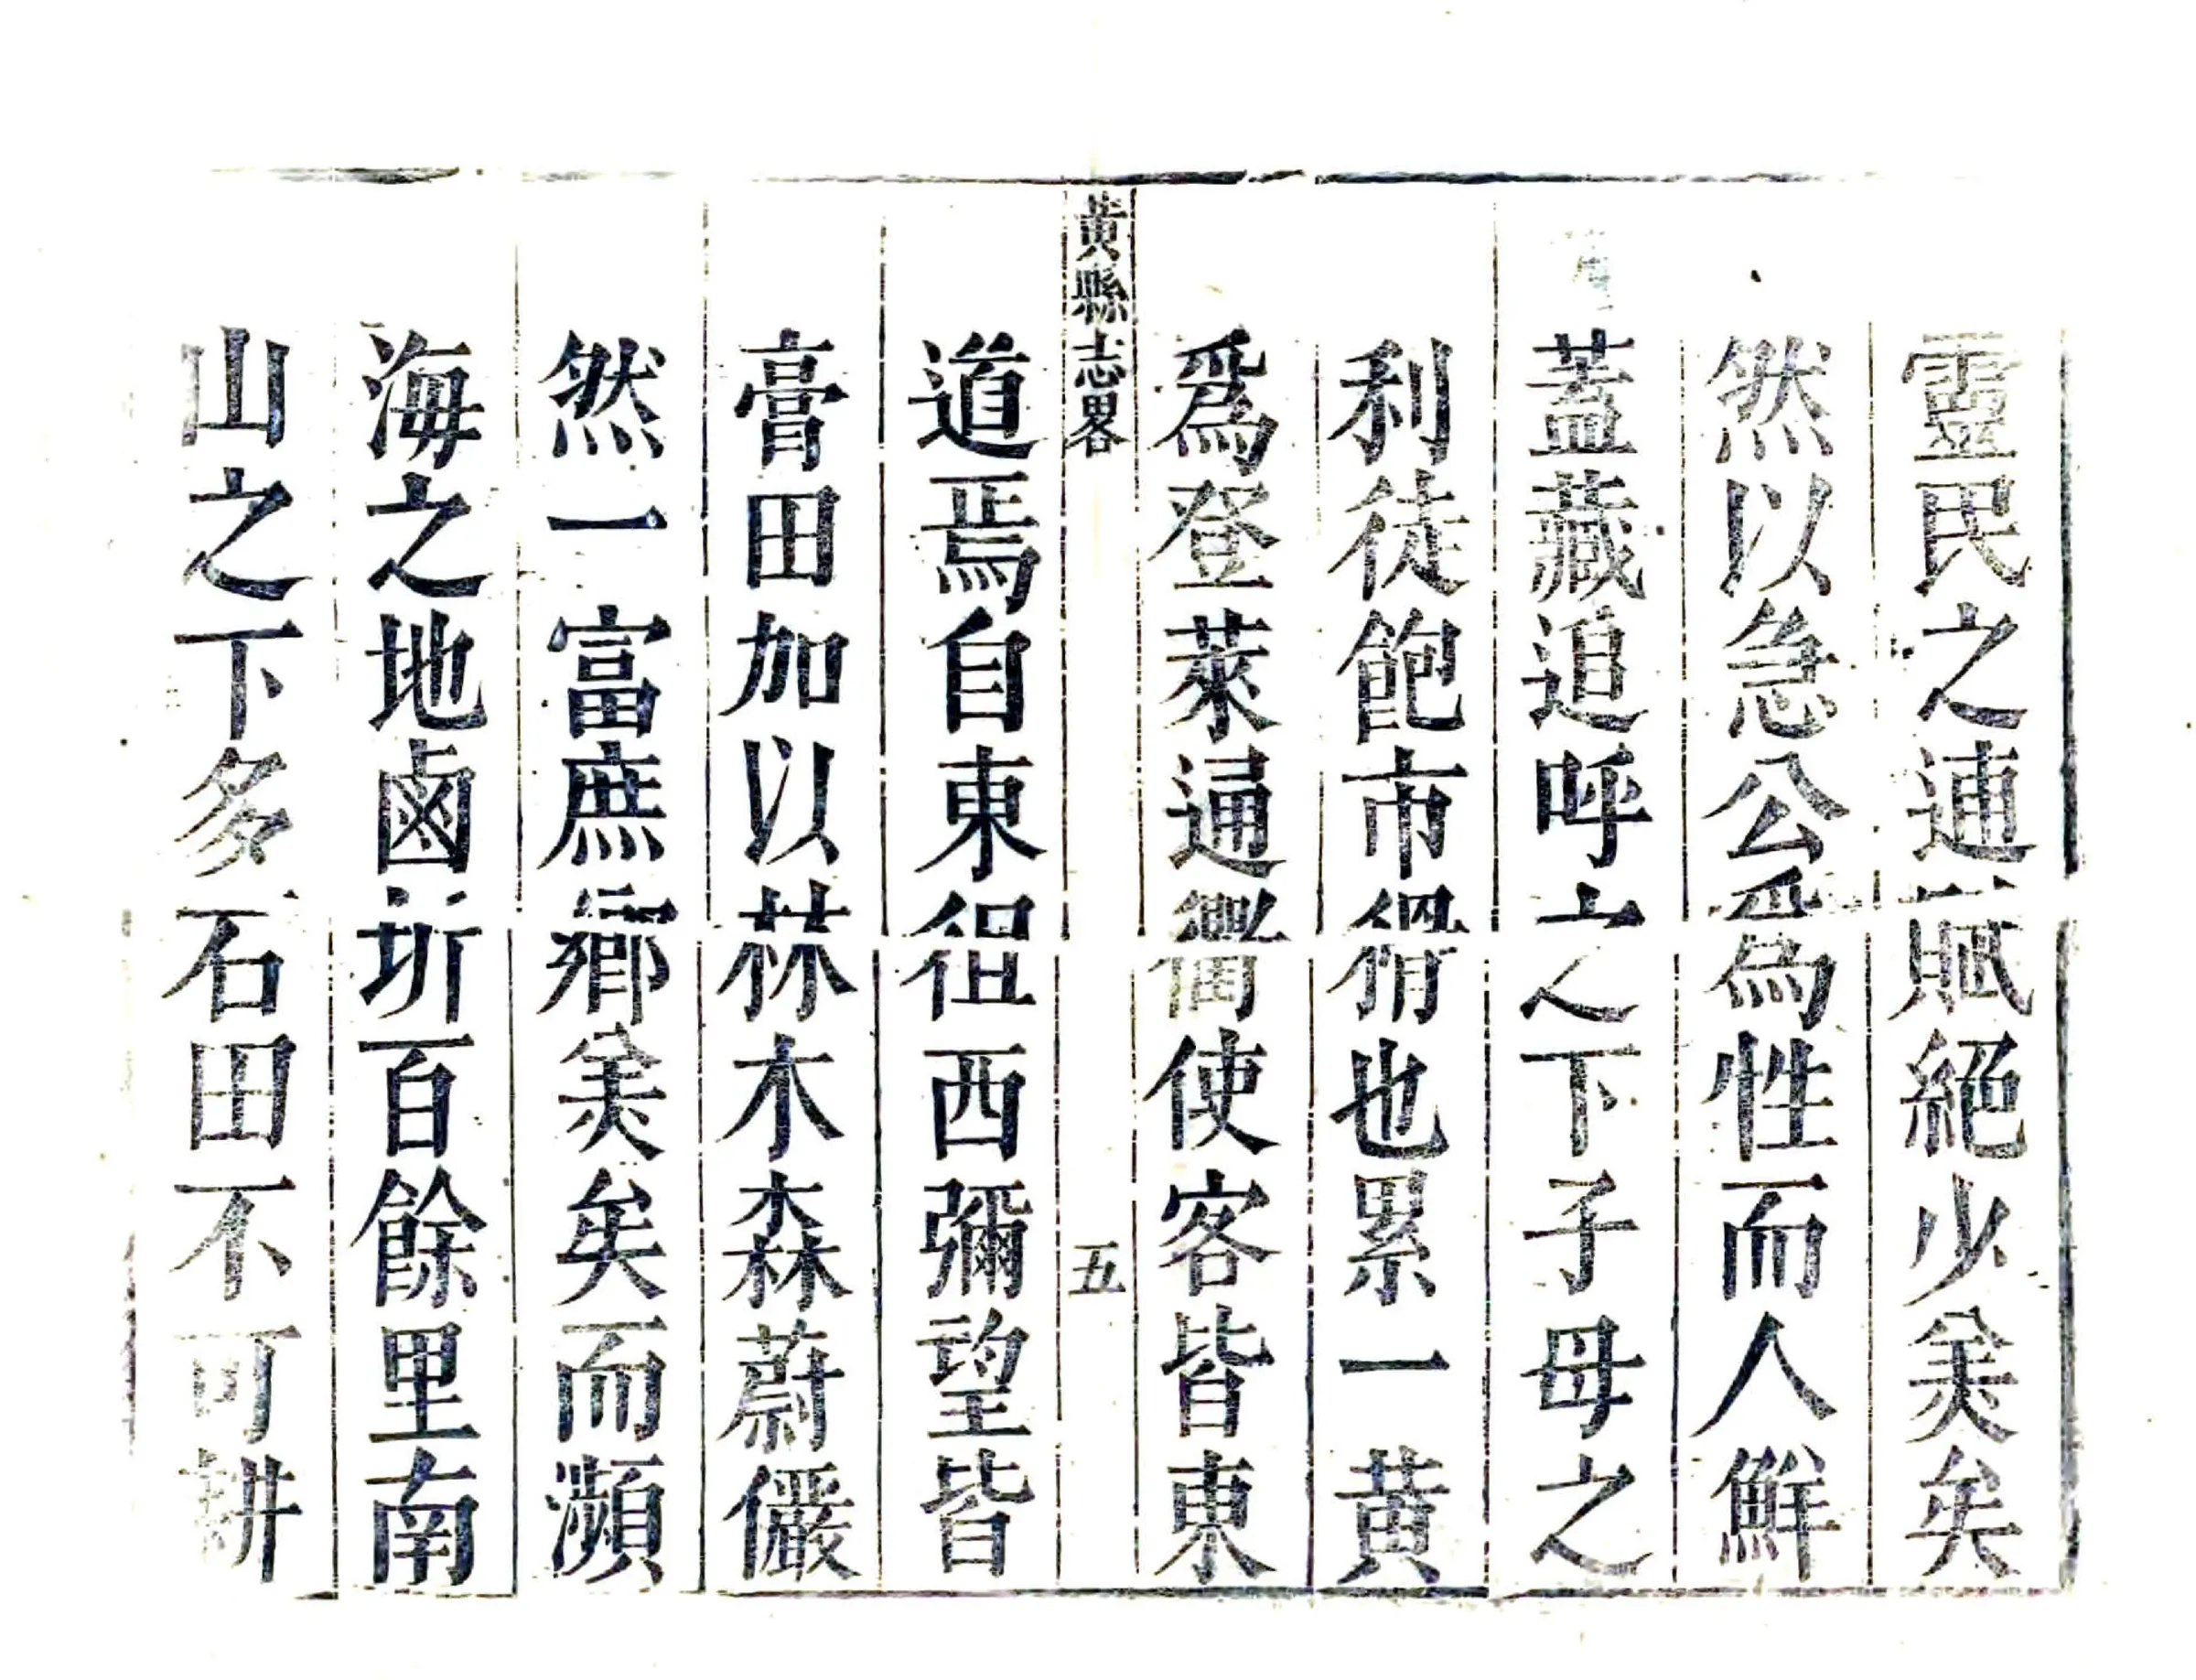 靈民之逋賦絕少美矣
然以急公爲性而人鮮
蓋藏追呼之下子母之
利徒飽市猾也累一黃
爲登萊通衢使客皆東
黃縣志畧 五
道焉自東徂西彌望皆
膏田加以林木森蔚儼
然一富庶鄉美矣而瀕
海之地鹵圻百餘里南
山之下多石田不可耕